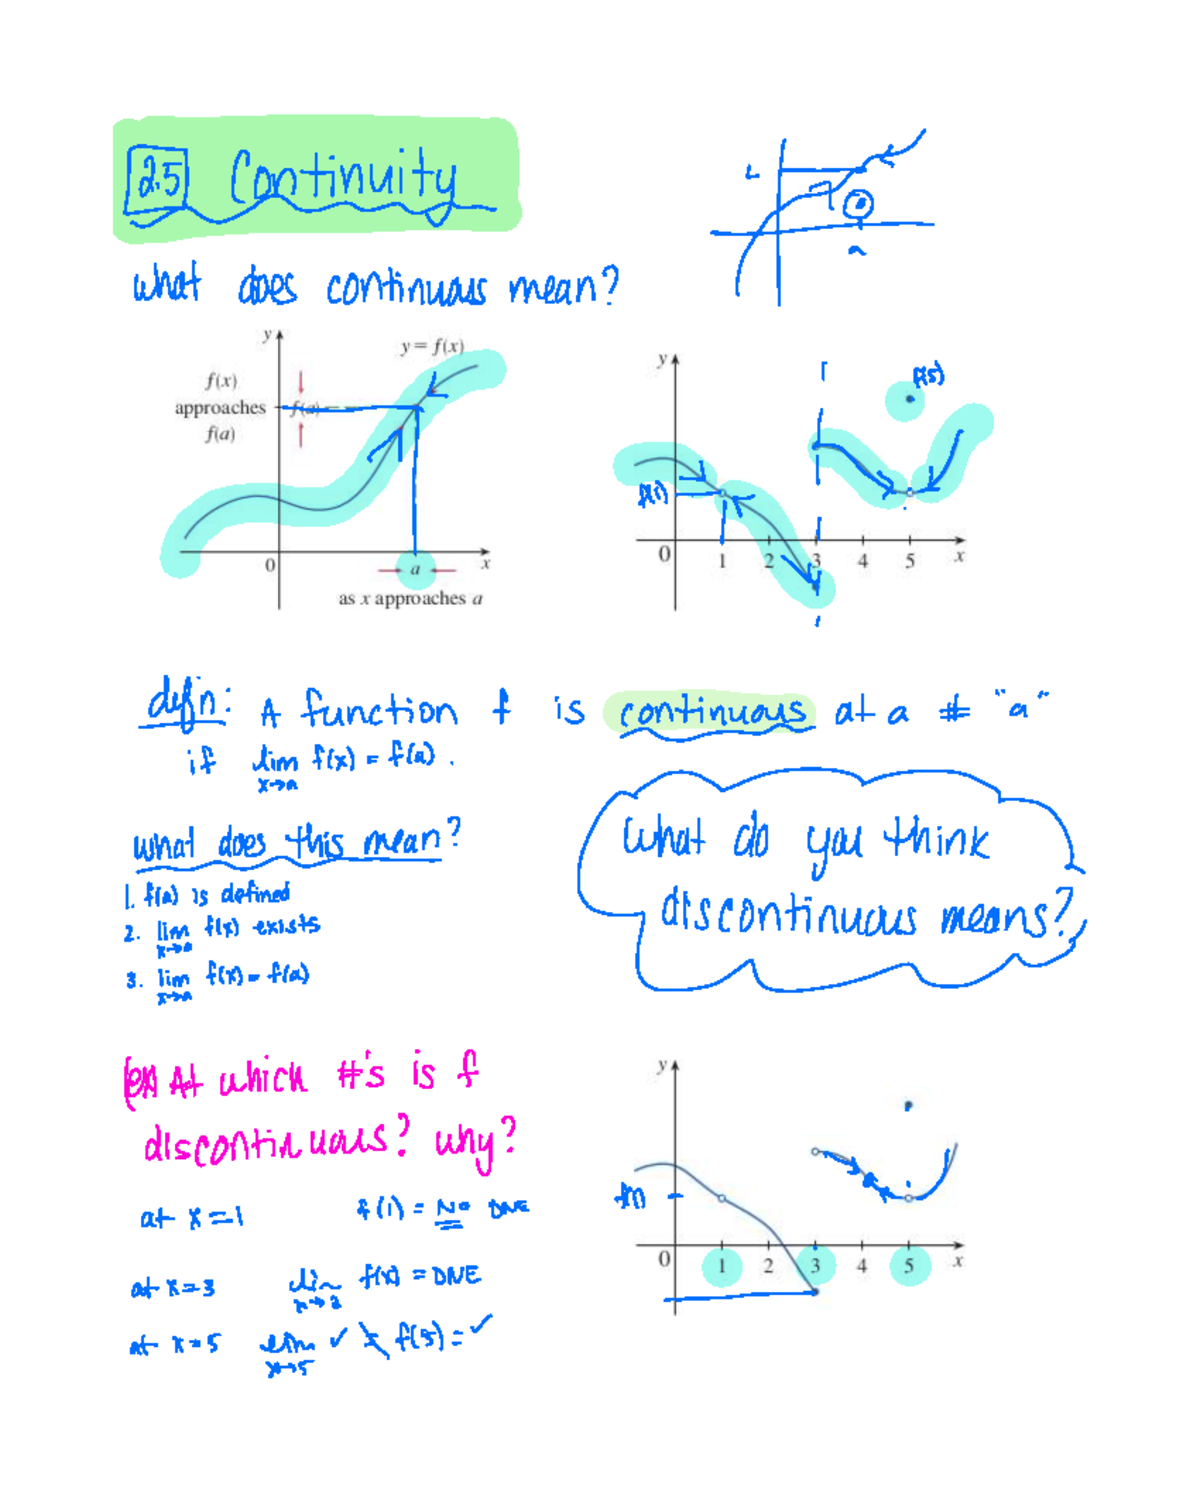 2.5 Continuity
L
a
what does continuous mean?
y
y = f(x)
f(x)
approaches
f(a)
f(a)
0
a
x
as x approaches a
y
f(5)
f(1)
0 1 2 3 4 5 x
defn: A function f is continuous at a # "a"
if lim f(x) = f(a).
x→a
what does this mean?
1. f(a) is defined
2. lim f(x) exists
x→a
3. lim f(x) = f(a)
x→a
What do you think
discontinuous means?
ex At which #'s is f
discontinuous? why?
at x=1 f(1) = No DNE
at x=3 lim f(x) = DNE
x→3
at x=5 lim ✓ ≠ f(5) = ✓
x→5
y
f(1)
0 1 2 3 4 5 x